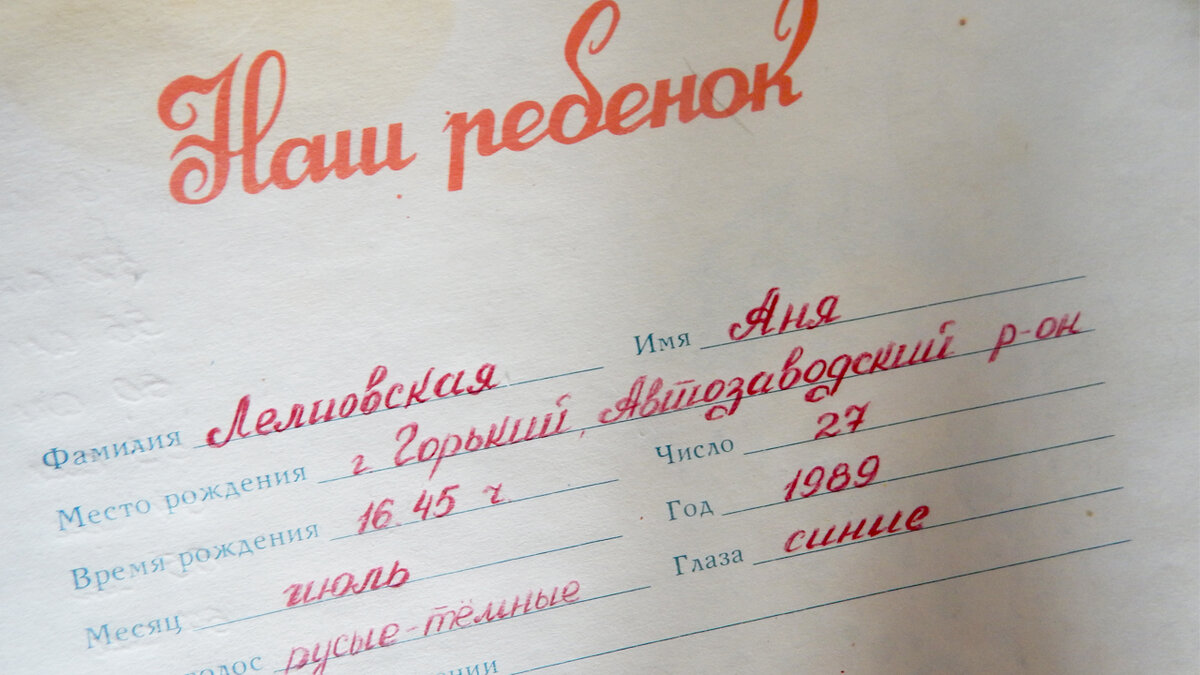 Наш ребенок
Фамилия Лелиовская Имя Аня
Место рождения г Горький, Автозаводский р-он
Время рождения 16 45 ч Число 27
Месяц июль Год 1989
русые-тёмные Глаза синие